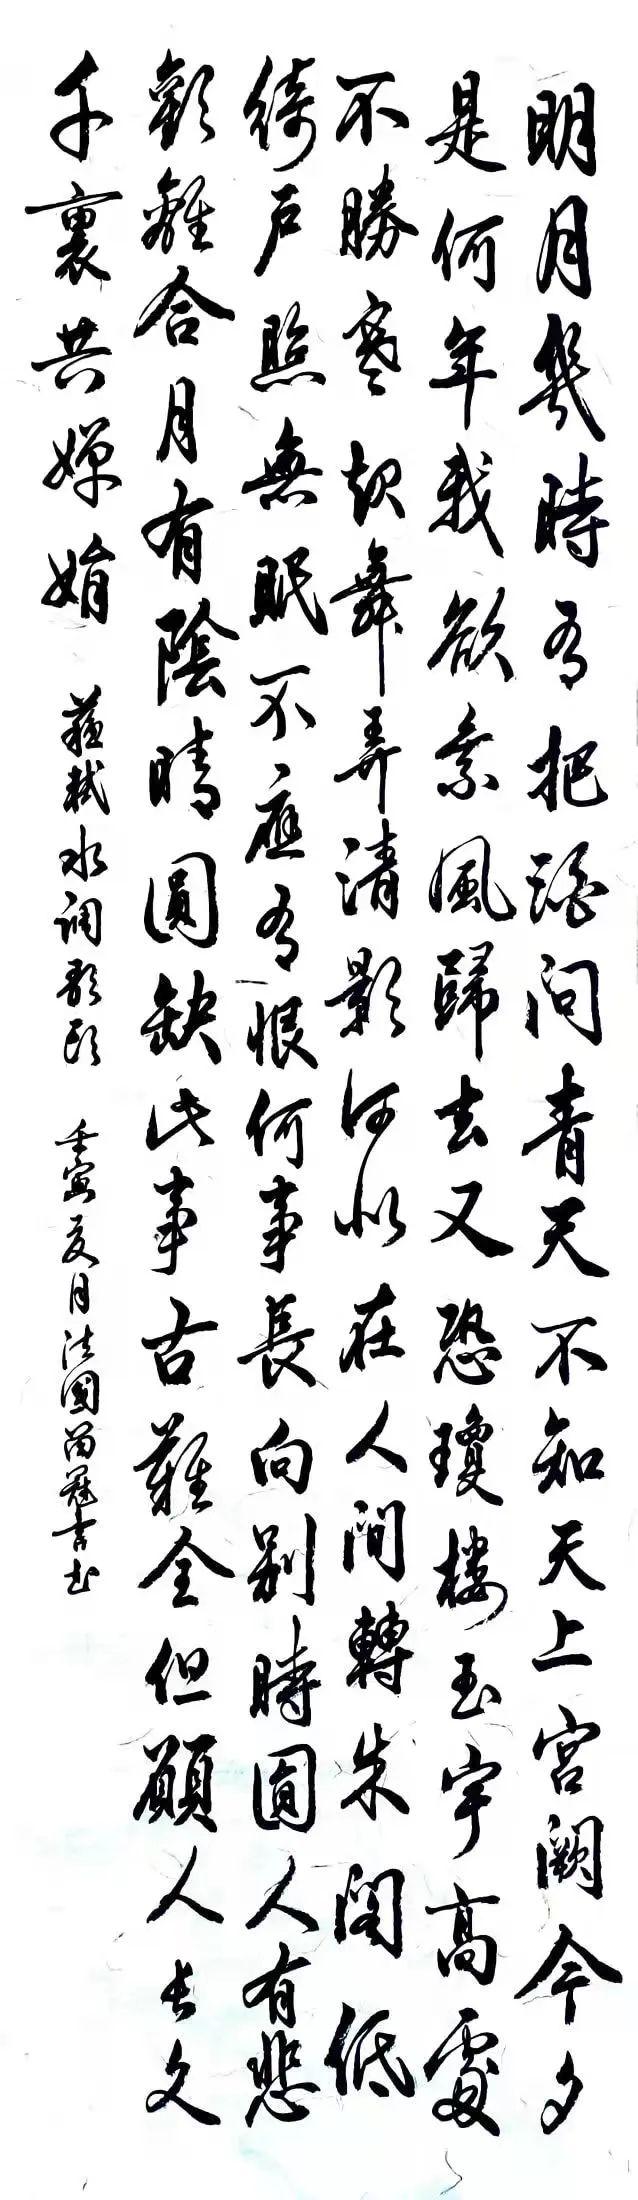 明月幾時有把酒問青天不知天上宮闕今夕
是何年我欲乘風歸去又恐瓊樓玉宇高處
不勝寒起舞弄清影何似在人間轉朱閣低
綺戶照無眠不應有恨何事長向別時圓人有悲
歡離合月有陰晴圓缺此事古難全但願人長久
千裏共嬋娟 蘇軾水调歌頭 壬寅夏月法國书